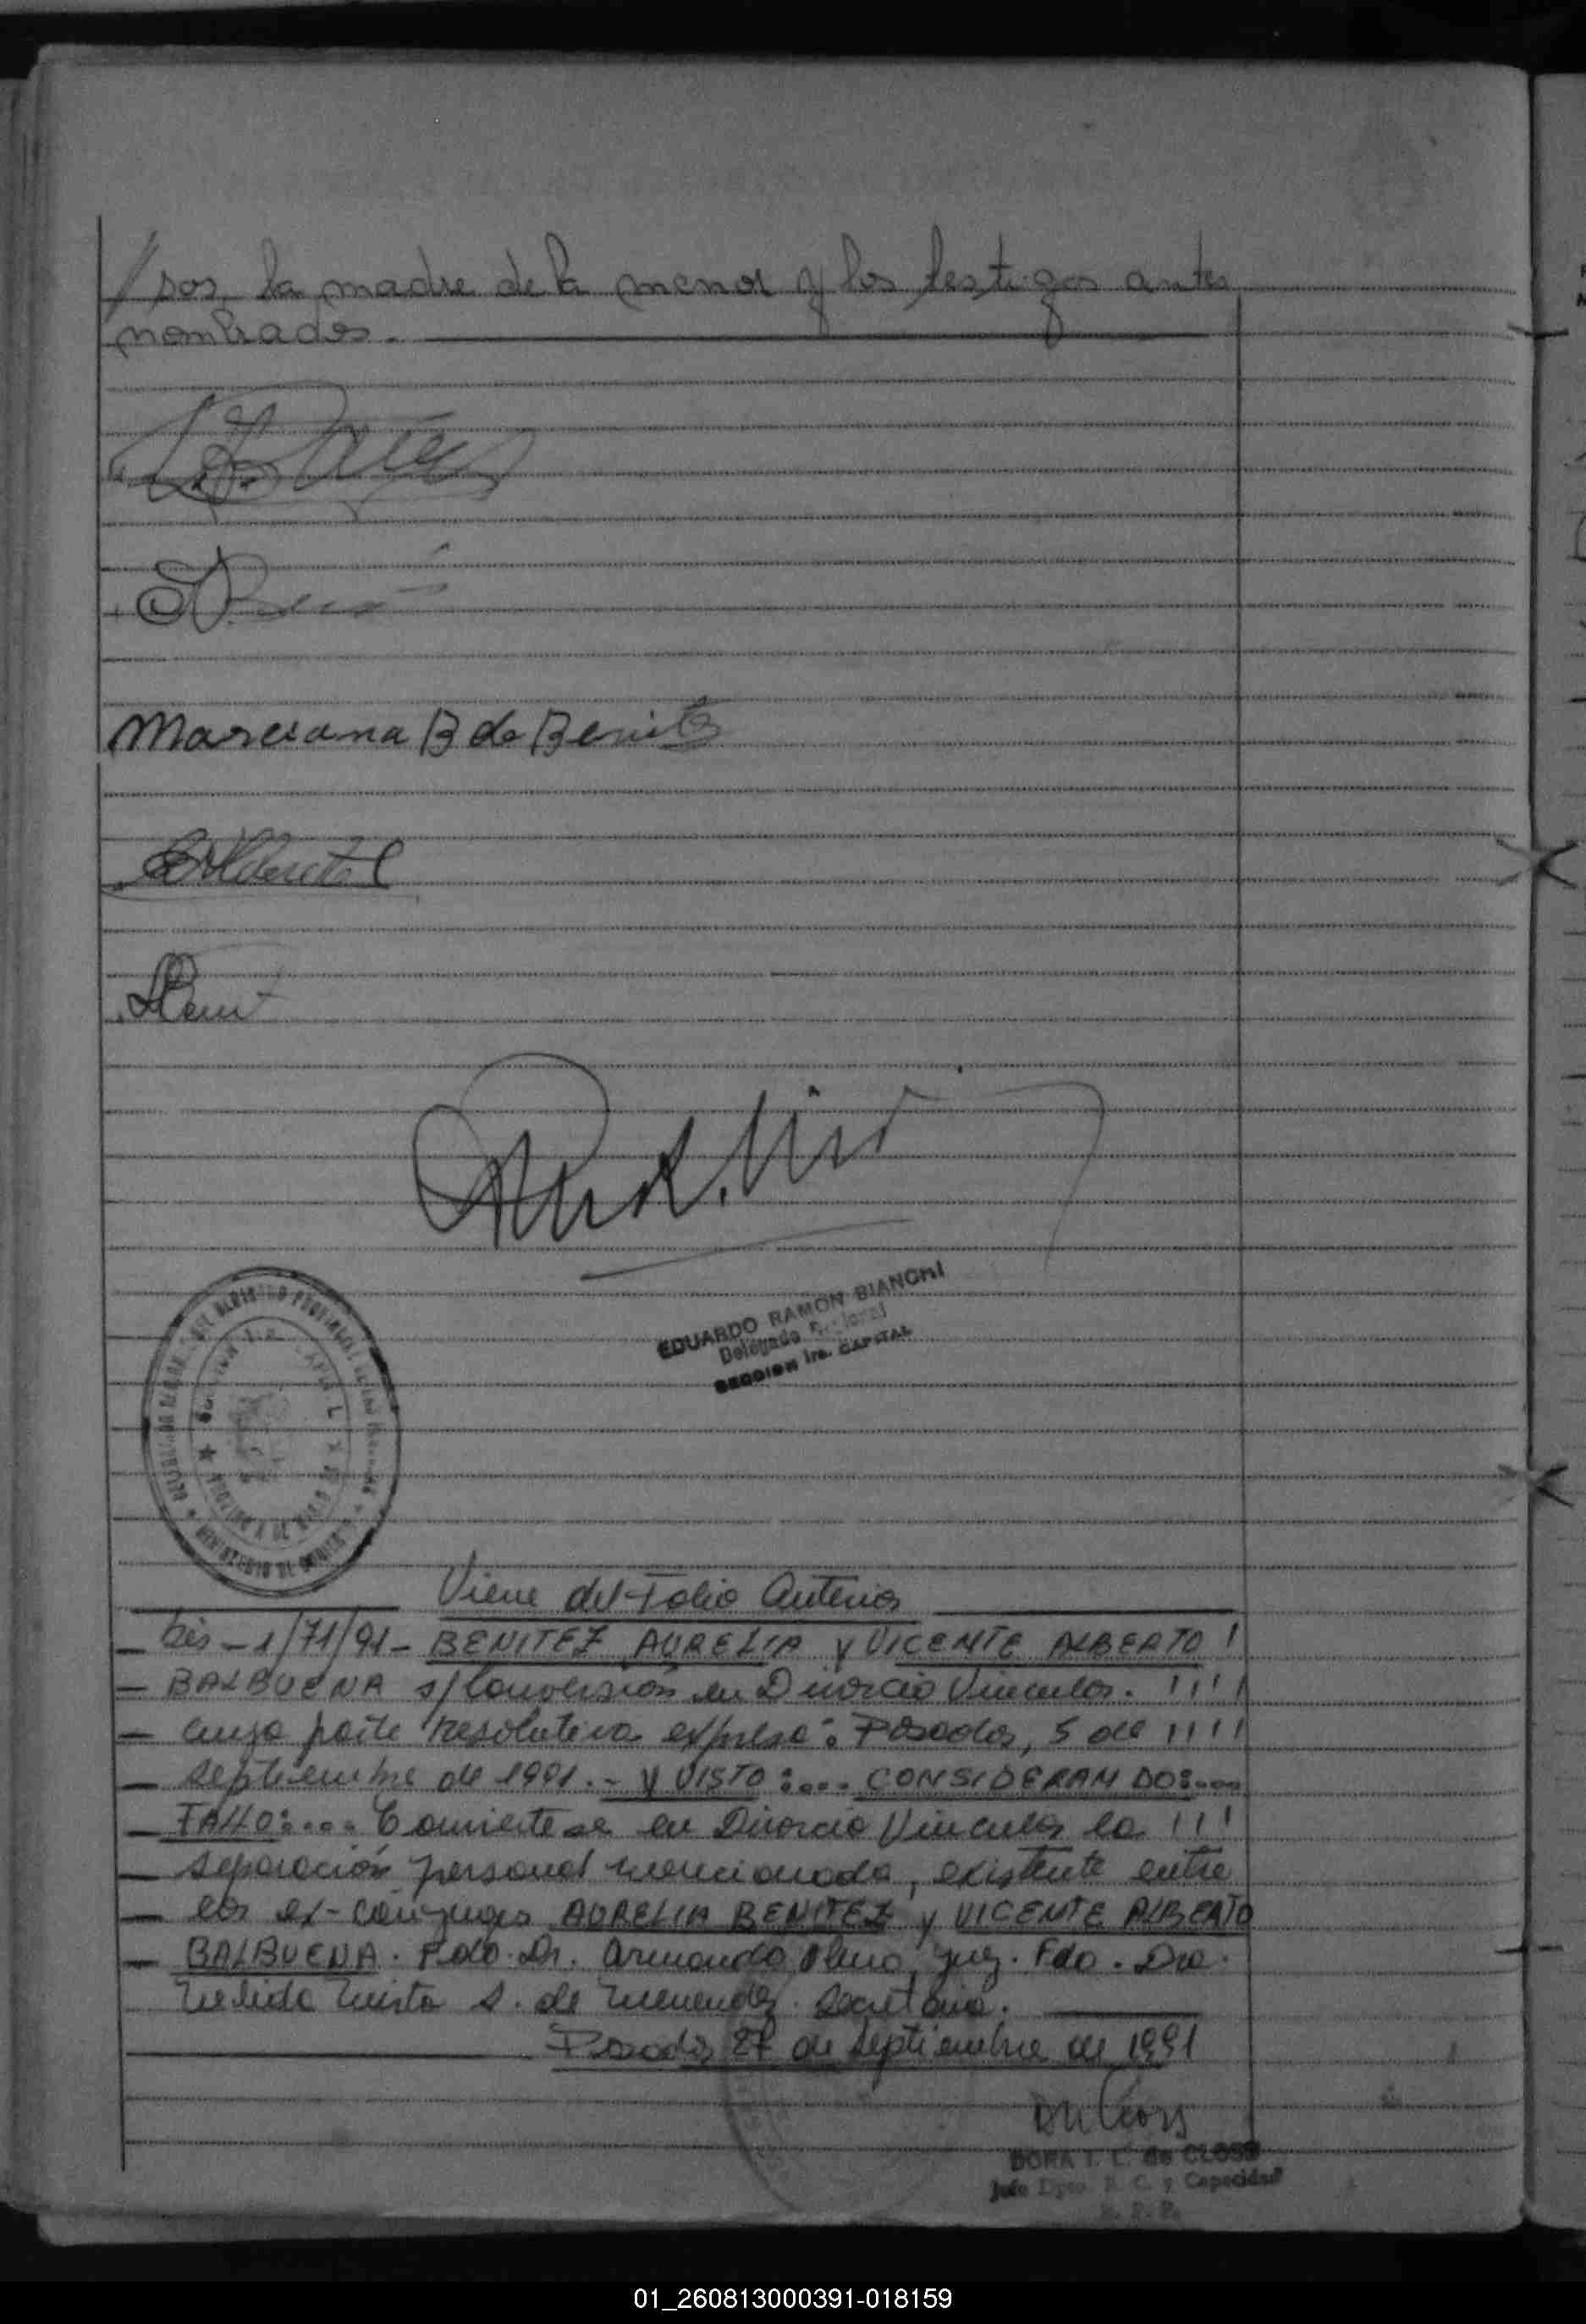 /sos, la madre de la menor y los testigos antes
nombrados.
Marciana B de Benitez
EDUARDO RAMON BIANCHI
Delegado
SECCION 1ra. CAPITAL
Viene del Folio Anterior
bis - 1/71/91 - BENITEZ AURELIA y VICENTE ALBERTO
BALBUENA s/ Conversión en Divorcio Vincular.
cuya parte resolutiva expresa: Posadas, 5 de
septiembre de 1991. - Y VISTO:.... CONSIDERANDO:....
FALLO:.... Conviertese en Divorcio Vincular la
separación personal mencionada, existente entre
los ex-cónyuges AURELIA BENITEZ y VICENTE ALBERTO
BALBUENA. Fdo. Dr. Armando Juez. Fdo. Dra.
S. de Menendez. Secretaria.
Posadas 27 de Septiembre de 1991
DORA I. C. de CLOSS
Jefe Dpto. R. C. y Capacidad
R. P. P.
01_260813000391-018159